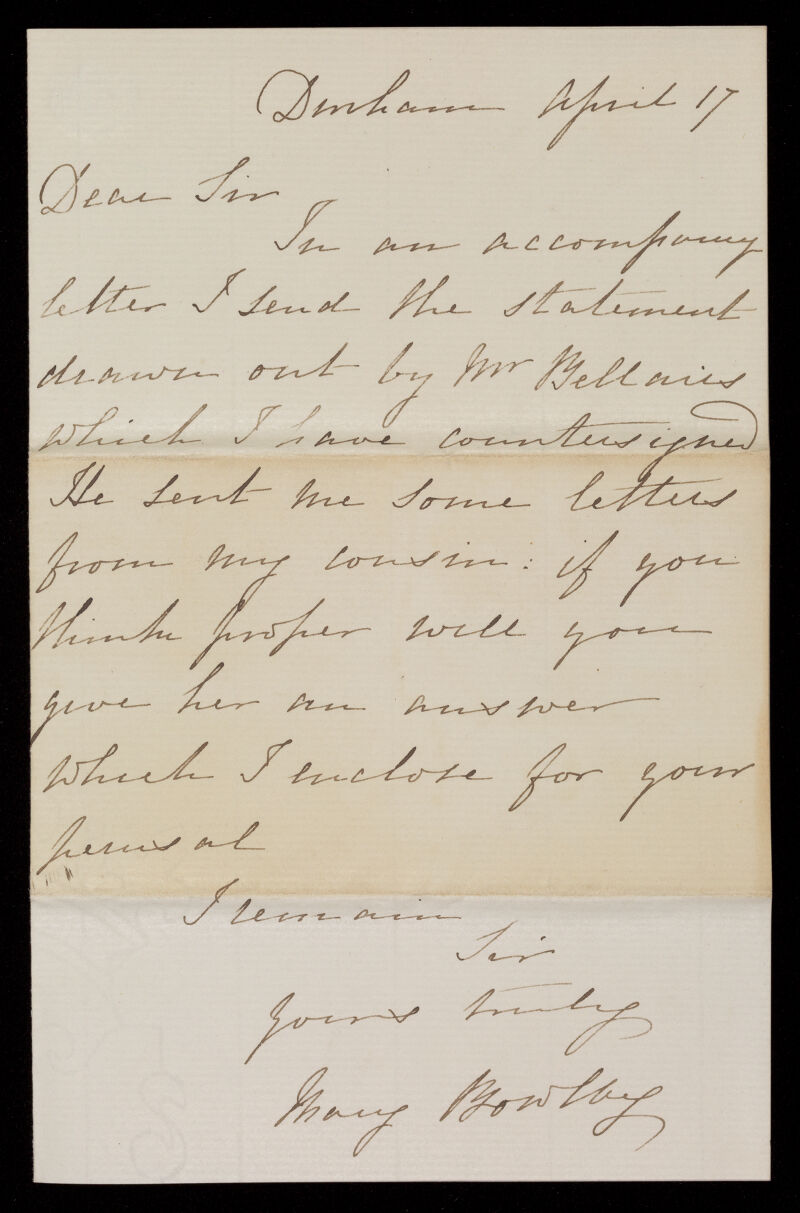 Durham April 17
Dear Sir
In an accompany
letter I send the statement
drawn out by Mr Bellairs
which I have countersigned
He sent me some letters
from my cousin: if you
think proper will you
give her an answer
which I enclose for your
perusal
I remain
Sir
yours truly
Mary Bowlby